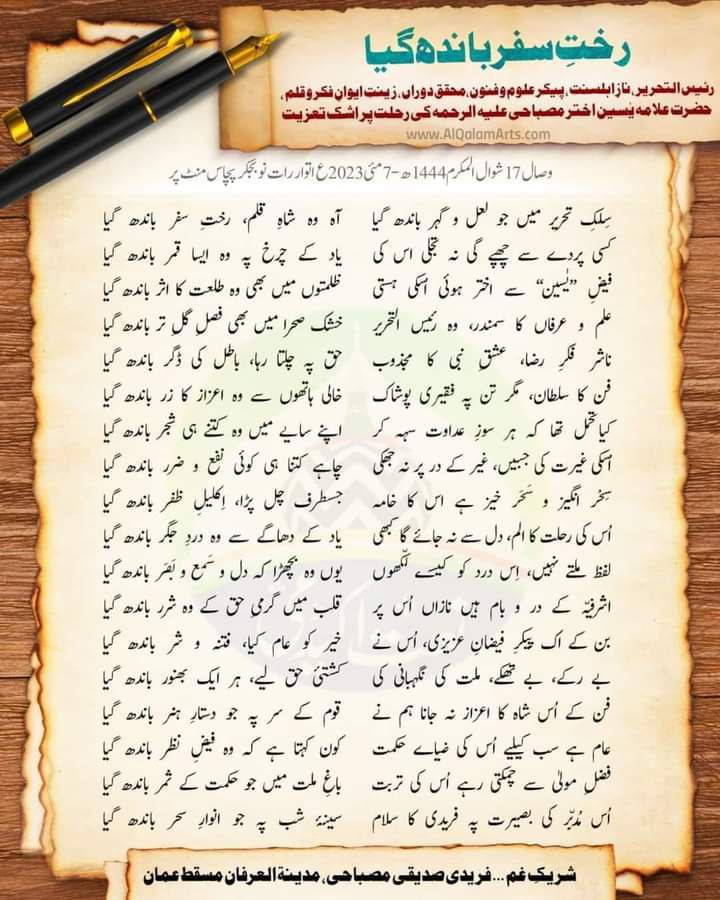 رختِ سفر باندھ گیا
رئیس التحریر، نازِ اہلسنت، پیکرِ علوم و فنون، محقق دوراں، زینتِ ایوانِ فکر و قلم،
حضرت علامہ یٰسین اختر مصباحی علیہ الرحمہ کی رحلت پر اشک تعزیت
www.AlQalamArts.com
وصال 17 شوال المکرم 1444ھ - 7 مئی 2023ع اتوار رات نو بجکر پچاس منٹ پر
سِلکِ تحریر میں جو لعل و گہر باندھ گیا آہ وہ شاہِ قلم، رختِ سفر باندھ گیا
کسی پردے سے چھپے گی نہ تجلی اس کی یاد کے چرخ پہ وہ ایسا قمر باندھ گیا
فیضِ ”یٰسین“ سے اختر ہوئی اسکی ہستی ظلمتوں میں بھی وہ طلعت کا اثر باندھ گیا
علم و عرفاں کا سمندر، وہ رئیس التحریر خشک صحرا میں بھی فصلِ گلِ تر باندھ گیا
ناشرِ فکرِ رضا، عشقِ نبی کا مجذوب حق پہ چلتا رہا، باطل کی ڈگر باندھ گیا
فن کا سلطان، مگر تن پہ فقیری پوشاک خالی ہاتھوں سے وہ اعزاز کا زر باندھ گیا
کیا تحمل تھا کہ ہر سوزِ عداوت سہہ کر اپنے سایے میں وہ کتنے ہی شجر باندھ گیا
اسکی غیرت کی جبیں، غیر کے در پر نہ جھکی چاہے کتنا ہی کوئی نفع و ضرر باندھ گیا
سِحْر انگیز و سَحَر خیز ہے اس کا خامہ جسطرف چل پڑا، اِکلیلِ ظفر باندھ گیا
اُس کی رحلت کا الم، دل سے نہ جائے گا کبھی یاد کے دھاگے سے وہ دردِ جگر باندھ گیا
لفظ ملتے نہیں، اِس درد کو کیسے لکّھوں یوں وہ بچھڑا کہ دل و سَمع و بَصَر باندھ گیا
اشرفیّہ کے در و بام ہیں نازاں اُس پر قلب میں گرمیِ حق کے وہ شرر باندھ گیا
بن کے اک پیکرِ فیضانِ عزیزی، اُس نے خیر کو عام کیا، فتنہ و شر باندھ گیا
بے رکے، بے تھکے، ملت کی نگہبانی کی کشتیِٔ حق لیے، ہر ایک بھنور باندھ گیا
فن کے اُس شاہ کا اعزاز نہ جانا ہم نے قوم کے سر پہ جو دستارِ ہنر باندھ گیا
عام ہے سب کیلیے اُس کی ضیاے حکمت کون کہتا ہے کہ وہ فیضِ نظر باندھ گیا
فضلِ مولیٰ سے چمکتی رہے اُس کی تربت باغِ ملت میں جو حکمت کے ثمر باندھ گیا
اُس مُدَبّر کی بصیرت پہ فریدی کا سلام سینۂ شب پہ جو انوارِ سحر باندھ گیا
شریکِ غم... فریدی صدیقی مصباحی، مدینة العرفان مسقط عمان